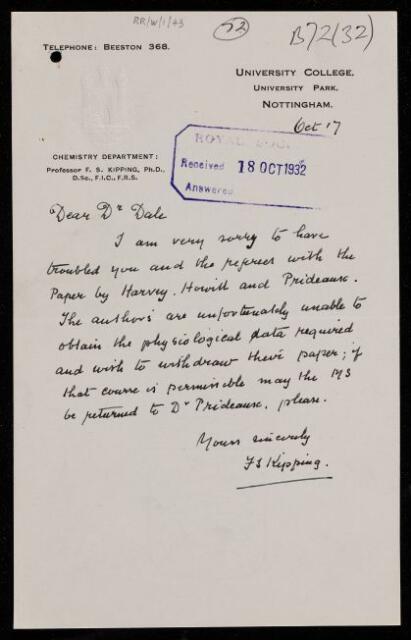 RR/W/1/43
72
B72(32)
TELEPHONE: BEESTON 368.
UNIVERSITY COLLEGE,
UNIVERSITY PARK,
NOTTINGHAM.
Oct 17
ROYAL SOC.
Received 18 OCT 1932
Answered
CHEMISTRY DEPARTMENT:
Professor F. S. KIPPING, Ph.D.,
D.Sc., F.I.C., F.R.S.
Dear Dr Dale
I am very sorry to have
troubled you and the referees with the
Paper by Harvey, Howitt and Prideaux.
The authors are unfortunately unable to
obtain the physiological data required
and wish to withdraw their paper; if
that course is permissible may the MS
be returned to Dr Prideaux, please.
Yours sincerely
F S Kipping.